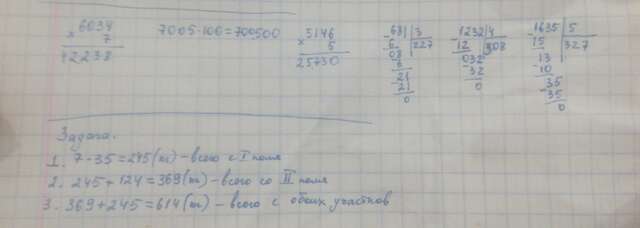 × 6034
7
42238
7005·100=700500
× 5146
5
25730
-681 | 3
6 | 227
08
6
-21
21
0
1232 | 4
12 | 308
032
-32
0
-1635 | 5
15 | 327
13
-10
35
-35
0
Задача.
1. 7·35=245(т) – всего с I поля
2. 245+124=369(т) – всего со II поля
3. 369+245=614(т) – всего с обоих участков